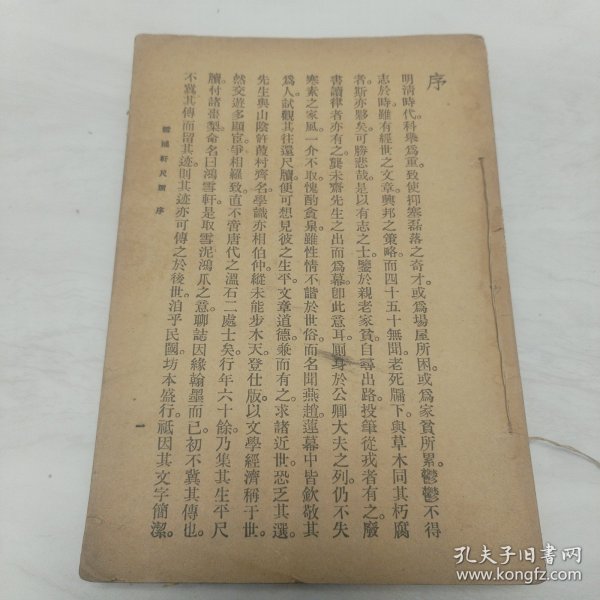 序
明清時代。科舉爲重。致使抑塞磊落之奇才。或爲場屋所困。或爲家貧所累。鬱鬱不得
志於時。雖有經世之文章。興邦之策略。而四十五十無聞。老死牖下。與草木同其朽腐
者。斯亦夥矣。可勝悲哉。是以有志之士。鑒於親老家貧。自尋出路。投筆從戎者有之。廢
書讀律者亦有之。龔未齋先生之出而爲幕。卽此意耳。厠身於公卿大夫之列。仍不失
寒素之家風。一介不取。愧酌貪泉。雖性情不諧於世俗。而名聞燕趙。蓮幕中皆欽敬其
爲人。試觀其往還尺牘。便可想見彼之生平。文章道德。兼而有之。求諸近世。恐乏其選。
先生與山陰許葭村齊名。學識亦相伯仲。縱未能步木天。登仕版。以文學經濟稱于世。
然交遊多顯宦。爭相羅致。直不啻唐代之溫石二處士矣。行年六十餘。乃集其生平尺
牘。付諸棗梨。命名曰鴻雪軒。是取雪泥鴻爪之意。聊誌因緣翰墨而已。初不冀其傳也。
不冀其傳而留其迹。則其迹亦可傳之於後世。洎乎民國。坊本盛行。祗因其文字簡潔。
軒尺牘 序
一
孔夫子旧书网
www.kongfz.com